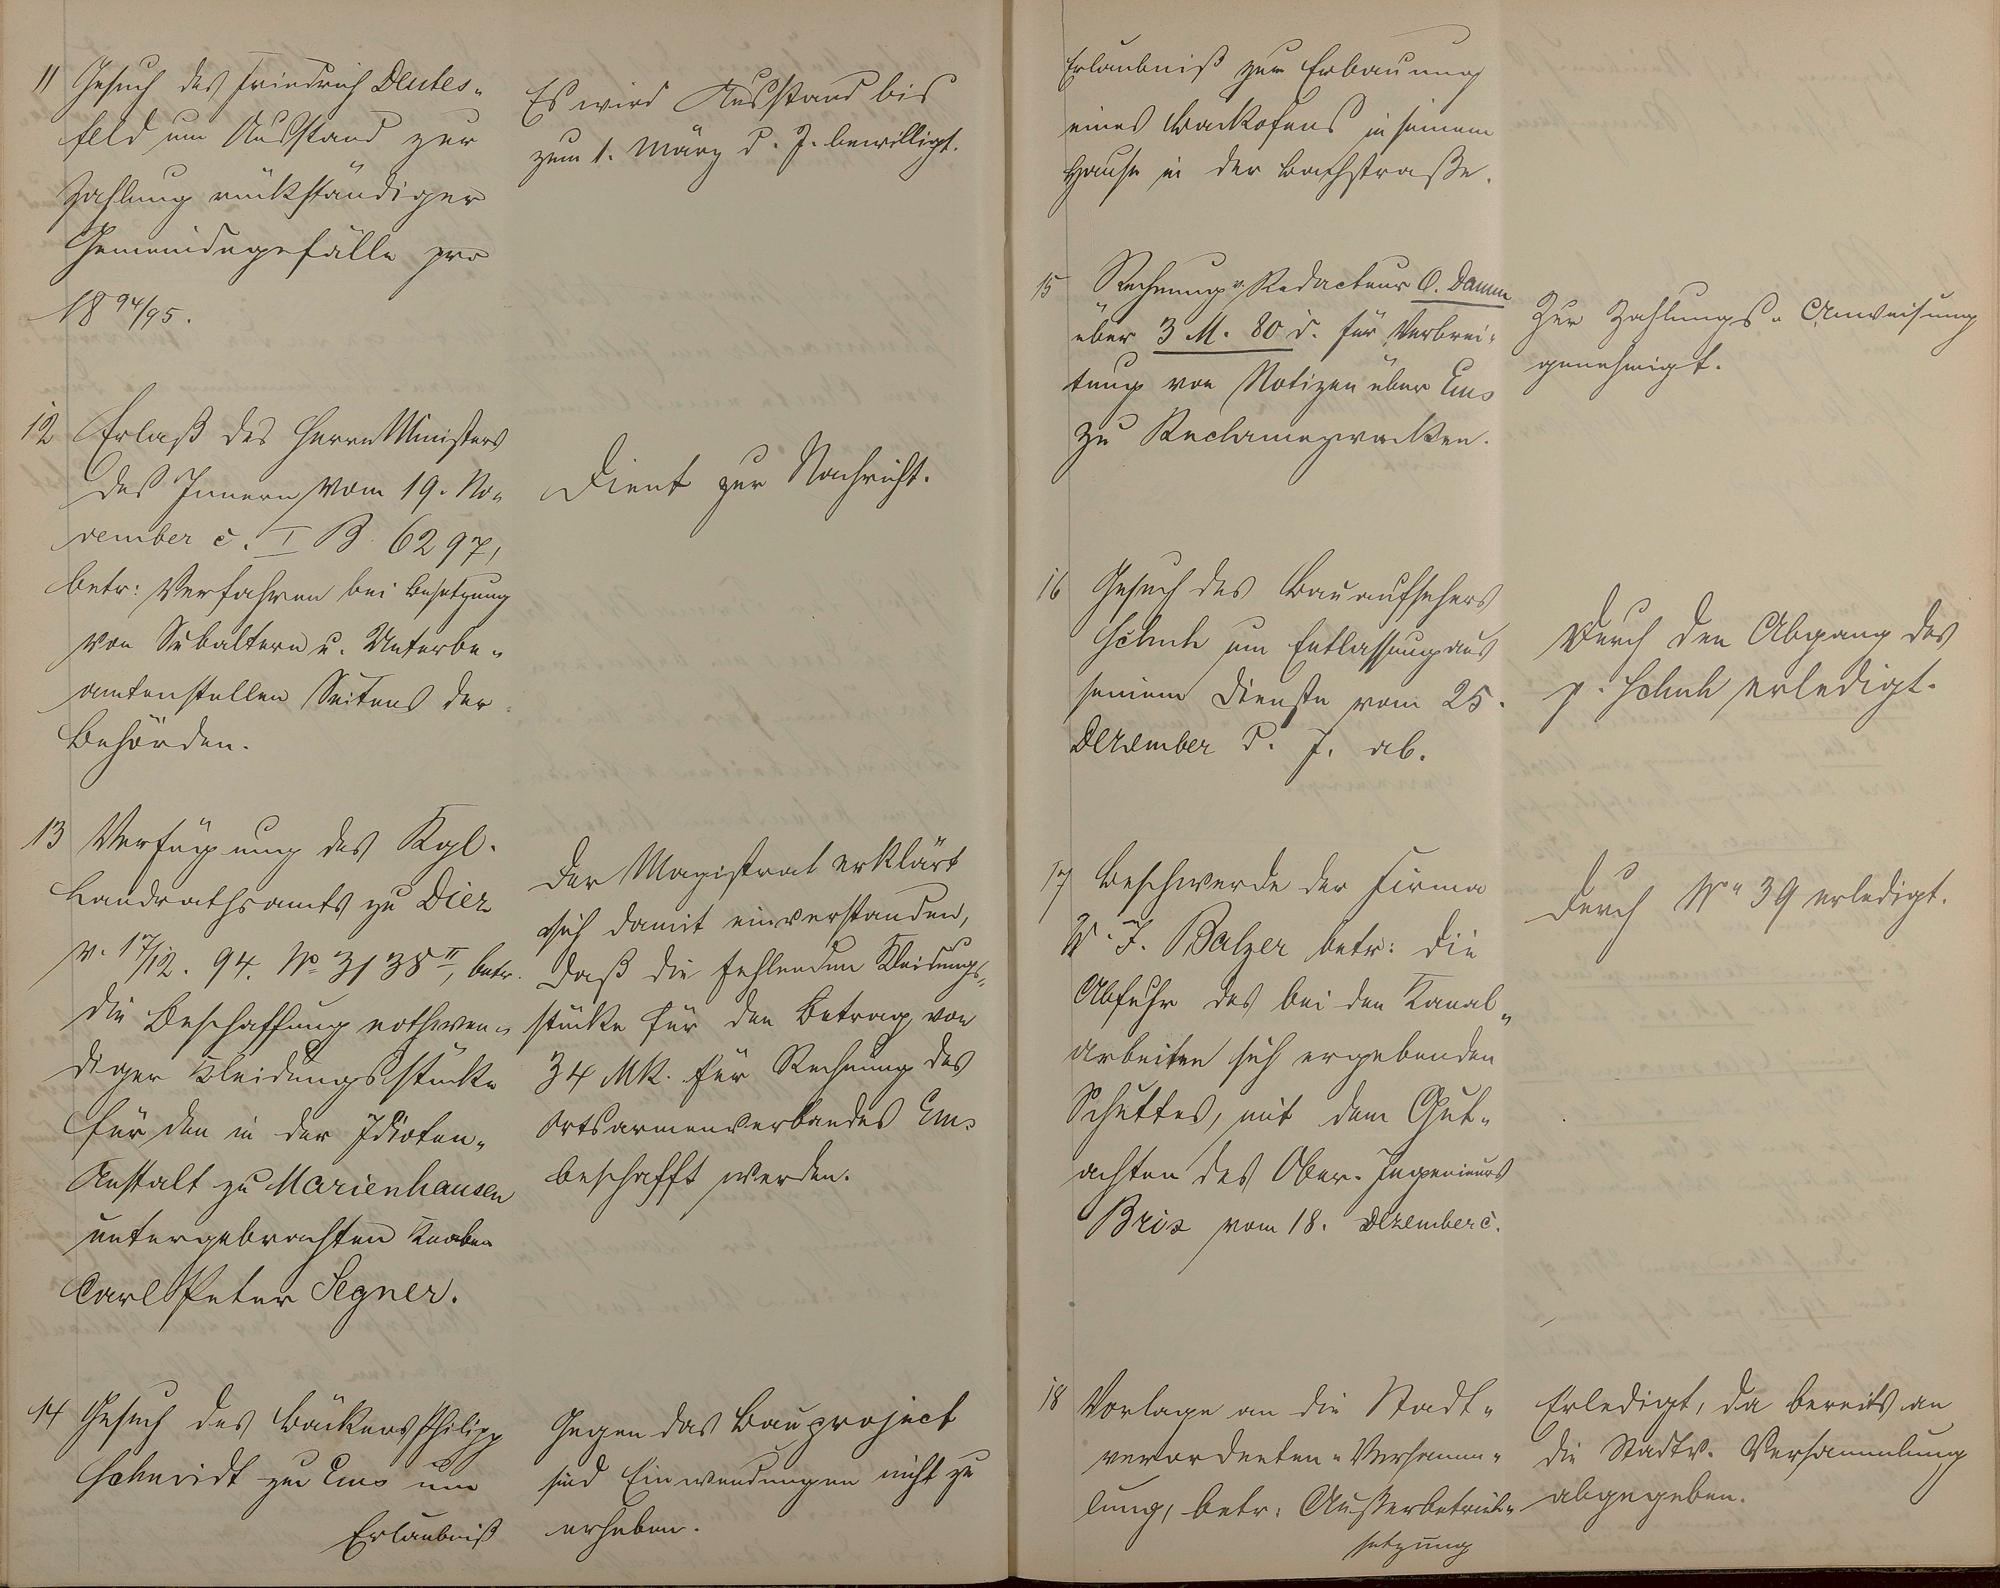 11 Gesuch des Friedrich Deutes-
feld um Ausstand zur
Zahlung rückständiger
Gemeindegefälle pro
18 94/95.
Es wird Ausstand bis
zum 1. März d. J. bewilligt.
12 Erlaß des Herrn Ministers
des Innern vom 19. No-
vember c. I B. 6297,
betr: Verfahren bei Besetzung
von Subaltern u. Unterbe-
amtenstellen Seitens der
Behörden.
Dient zur Nachricht.
13 Verfügung des Kgl.
Landrathsamts zu Diez
v. 17/12. 94. No 3138 II, betr.
die Beschaffung nothwen-
diger Kleidungsstücke
für den in der Idioten-
Anstalt zu Marienhausen
untergebrachten Knaben
Carl Peter Segner.
Der Magistrat erklärt
sich damit einverstanden,
daß die fehlenden Kleidungs-
stücke für den Betrag von
34 Mk. für Rechnung des
Ortsarmenverbandes Ems
beschafft werden.
14 Gesuch des Bäckers Philipp
Schmidt zu Ems um
Erlaubniß
Gegen das Bauproject
sind Einwendungen nicht zu
erheben.
Erlaubniß zur Erbauung
eines Backofens in seinem
Hause in der Bachstraße.
15 Rechnung v. Redacteur O. Damm
über 3 M. 80 d. für Verbrei-
tung von Notizen über Ems
zu Reclamezwecken.
Zur Zahlungs-Anweisung
genehmigt.
16 Gesuch des Bauaufsehers
Schuh um Entlassung aus
seinem Dienste vom 25.
Dezember d. J. ab.
Durch den Abgang des
p. Schuh erledigt.
17 Beschwerde der Firma
W. J. Balzer betr: die
Abfuhr des bei den Kanal-
arbeiten sich ergebenden
Schuttes, mit dem Gut-
achten des Ober-Ingenieurs
Brix vom 18. Dezember c.
Durch No 39 erledigt.
18 Vorlage an die Stadt-
verordneten-Versamm-
lung, betr: Außerbetrieb-
setzung
Erledigt, da bereits an
die Stadtv. Versammlung
abgegeben.